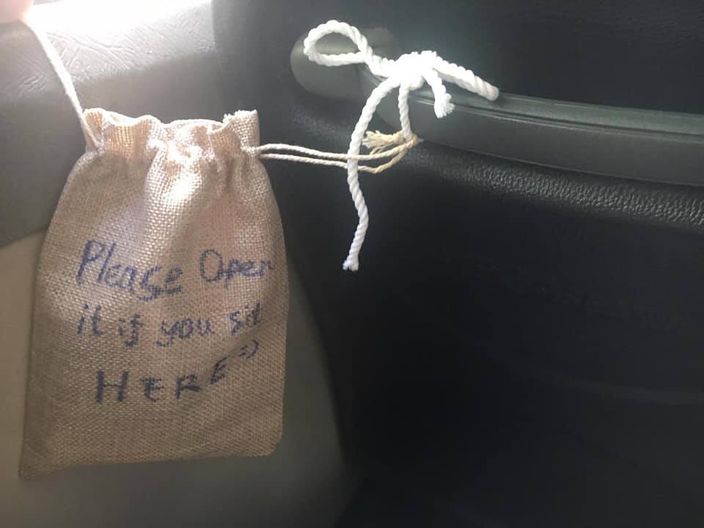 Please Open
it if you sit
HERE =)